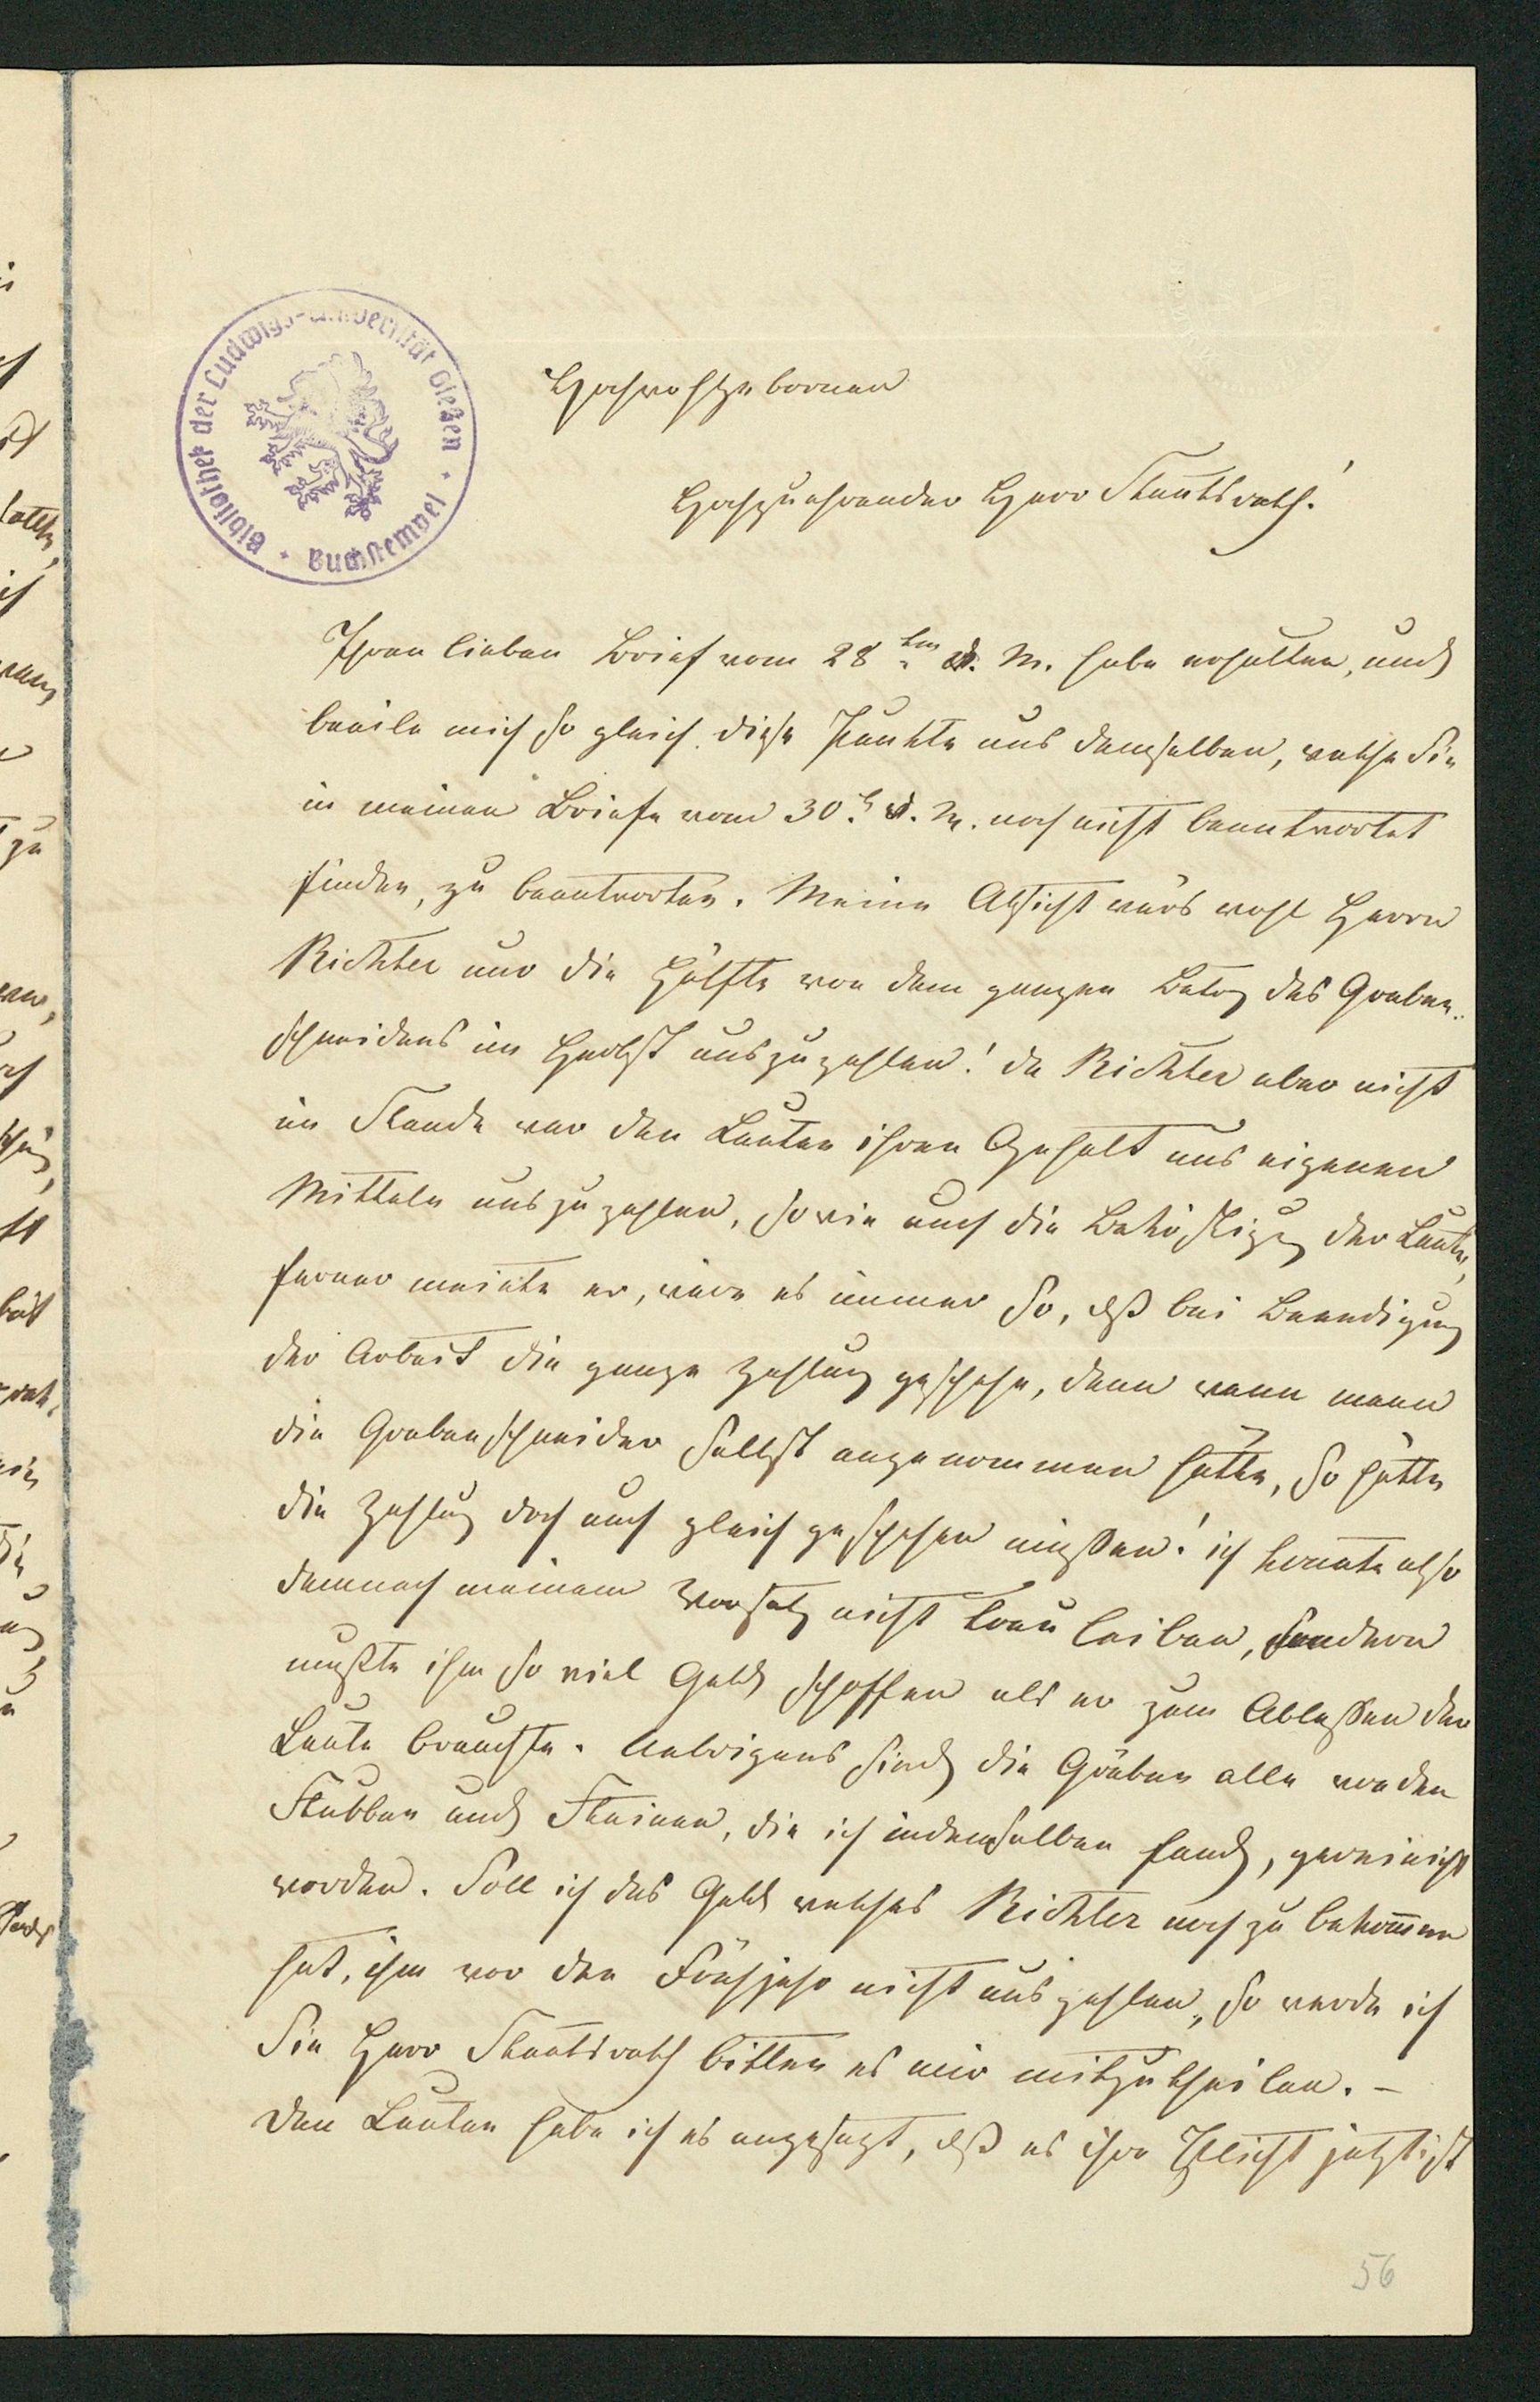 Bibliothek der Ludwigs-Universität Gießen · Buchstempel ·
Hochwohlgebornen
Hochzuehrender Herr Staatsrath!
Ihren lieben Brief vom 28ten d. M. habe erhalten, und
beeile mich so gleich diese Punkte aus demselben, welche Sie
in meinen Briefe vom 30t. d. M. noch nicht beantwortet
finden, zu beantworten. Meine Absicht war's wohl Herrn
Richter nur die Hälfte von dem ganzen Betrag des Graben-
schneidens im Herbst auszuzahlen! da Richter aber nicht
im Stande war den Leuten ihren Gehalt aus eigenen
Mitteln auszuzahlen, sowie auch die Beköstigung der Leute,
ferner meinte er, wäre es immer so, daß bei Beendigung
der Arbeit die ganze Zahlung geschehe, denn wenn mann
die Grabenschneider selbst angenommen hätte, so hätte
die Zahlung doch auch gleich geschehen müßen! ich konnte also
demnach meinem Vorsatz nicht treu bleiben, sondern
mußte ihm so viel Geld schaffen als er zum Ablaßen der
Leute brauchte. Uebrigens sind die Gräben alle von den
Stubben und Steinen, die ich in demselben fand, gereinicht
worden. Soll ich das Geld welches Richter noch zu bekommen
hat, ihm vor den Frühjahr nicht auszahlen, so werde ich
Sie Herr Staatsrath bitten es mir mitzutheilen. –
Den Leuten habe ich es angesagt, daß es ihre Pflicht jetzt ist
56